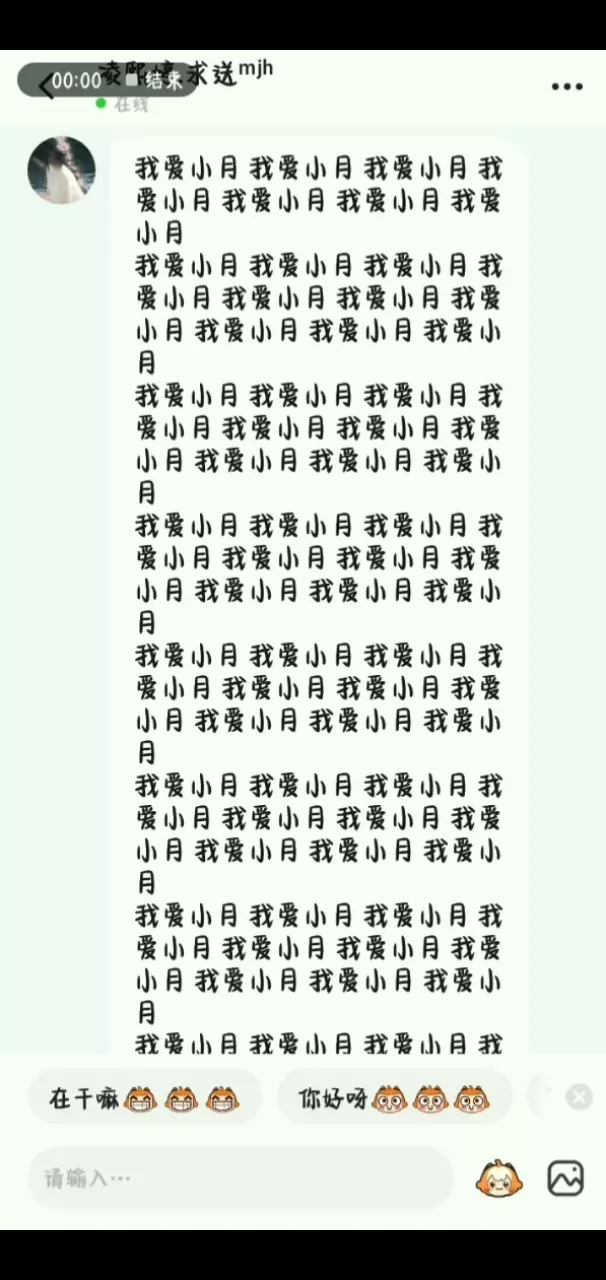 00:00 结束
求送mjh
在线
我爱小月我爱小月我爱小月我
爱小月我爱小月我爱小月我爱
小月
我爱小月我爱小月我爱小月我
爱小月我爱小月我爱小月我爱
小月我爱小月我爱小月我爱小
月
我爱小月我爱小月我爱小月我
爱小月我爱小月我爱小月我爱
小月我爱小月我爱小月我爱小
月
我爱小月我爱小月我爱小月我
爱小月我爱小月我爱小月我爱
小月我爱小月我爱小月我爱小
月
我爱小月我爱小月我爱小月我
爱小月我爱小月我爱小月我爱
小月我爱小月我爱小月我爱小
月
我爱小月我爱小月我爱小月我
爱小月我爱小月我爱小月我爱
小月我爱小月我爱小月我爱小
月
我爱小月我爱小月我爱小月我
爱小月我爱小月我爱小月我爱
小月我爱小月我爱小月我爱小
月
我爱小月我爱小月我爱小月我
在干嘛 你好呀
请输入…